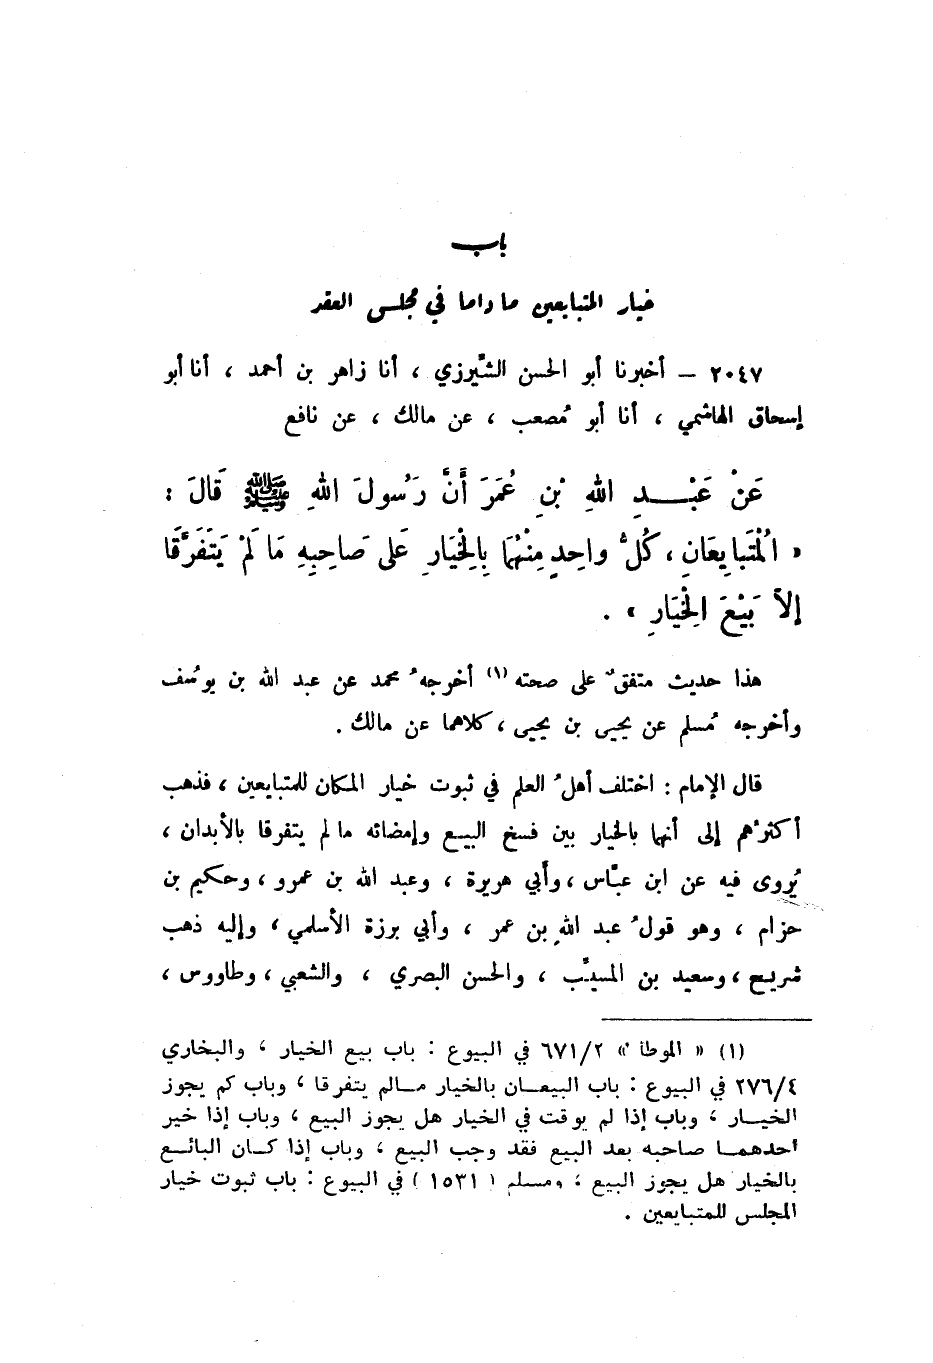 باب
خيار المتبايعين ما داما في مجلس العقد
٢٠٤٧ – أخبرنا أبو الحسن الشِّيرزي ، أنا زاهر بن أحمد ، أنا أبو
إسحاق الهاشمي ، أنا أبو مُصعب ، عن مالك ، عن نافع
عَنْ عَبْــدِ اللهِ بْنِ عُمَرَ أَنَّ رَسُولَ اللهِ ﷺ قَالَ :
« الْمُتَبايِعَانِ ، كُلُّ واحِدٍ مِنْهُمَا بِالْخِيَارِ عَلى صَاحِبِهِ مَا لَمْ يَتَفَرَّقَا
إلاّ بَيْعَ الْخِيَارِ » .
هذا حديث متفقٌ على صحته (١) أخرجهُ محمد عن عبد الله بن يوسُف
وأخرجه مُسلم عن يحيى بن يحيى ، كلاهما عن مالك .
قال الإمام : اختلف أهلُ العلم في ثبوت خيار المكان للمتبايعين ، فذهب
أكثرُهم إلى أنهما بالخيار بين فسخ البيع وإمضائه ما لم يتفرقا بالأبدان ،
يُروى فيه عن ابن عبَّاس ، وأبي هريرة ، وعبد الله بن عمرو ، وحكيم بن
حزام ، وهو قولُ عبد اللهِ بن عمر ، وأبي برزة الأسلمي ، وإليه ذهب
شريح ، وسعيد بن المسيَّب ، والحسن البصري ، والشعبي ، وطاووس ،
(١) « الموطأ » ٦٧١/٢ في البيوع : باب بيع الخيار ، والبخاري
٢٧٦/٤ في البيوع : باب البيعــان بالخيار مــالم يتفرقا ، وباب كم يجوز
الخيــار ، وباب إذا لم يوقت في الخيار هل يجوز البيع ، وباب إذا خير
أحدهمــا صاحبه بعد البيع فقد وجب البيع ، وباب إذا كــان البائــع
بالخيار هل يجوز البيع ، ومسلم ( ١٥٣١ ) في البيوع : باب ثبوت خيار
المجلس للمتبايعين .